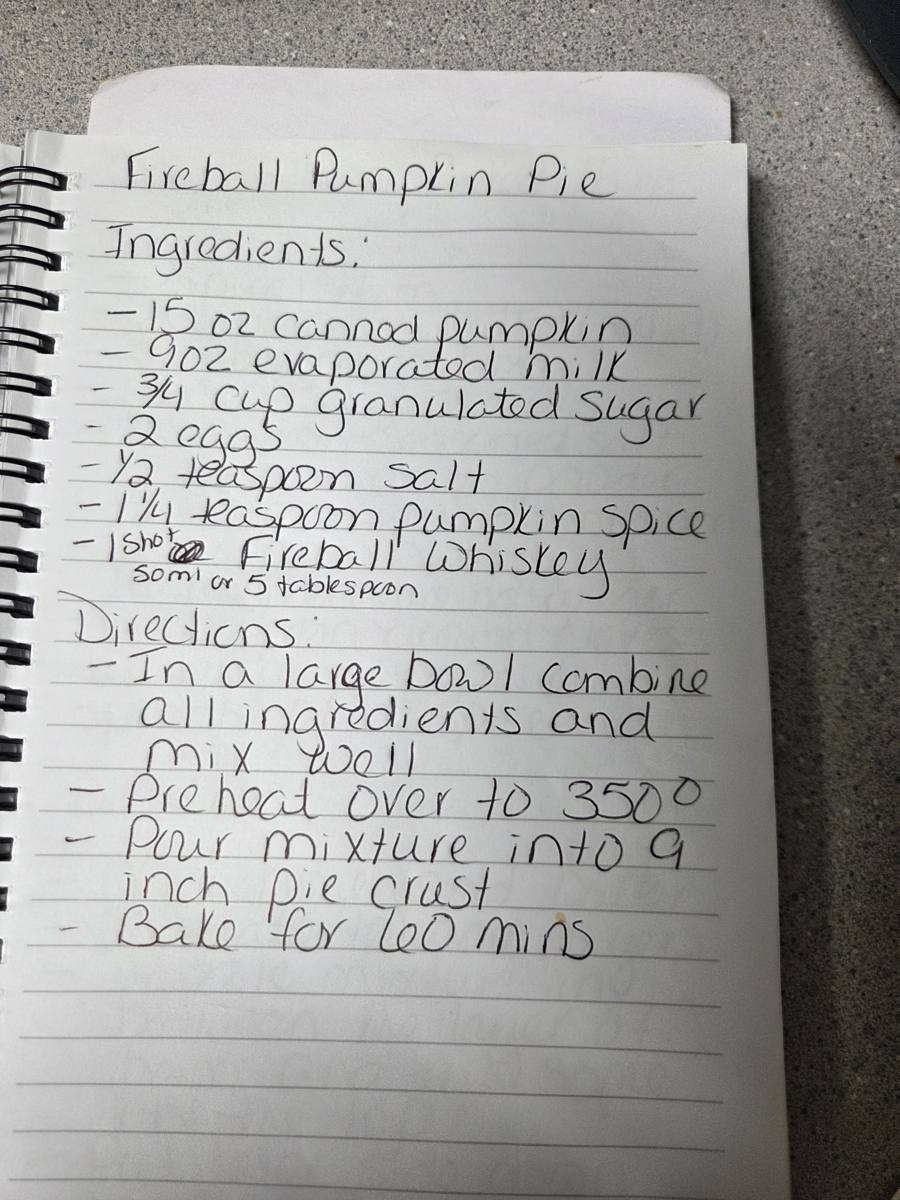 Fireball Pumpkin Pie
Ingredients:
- 15 oz canned pumpkin
- 9oz evaporated milk
- 3/4 cup granulated sugar
- 2 eggs
- 1/2 teaspoon salt
- 1 1/4 teaspoon pumpkin spice
- 1 shot Fireball Whiskey
50ml or 5 tablespoon
Directions:
- In a large bowl combine
all ingredients and
mix well
- Preheat over to 350°
- Pour mixture into 9
inch pie crust
- Bake for 60 mins